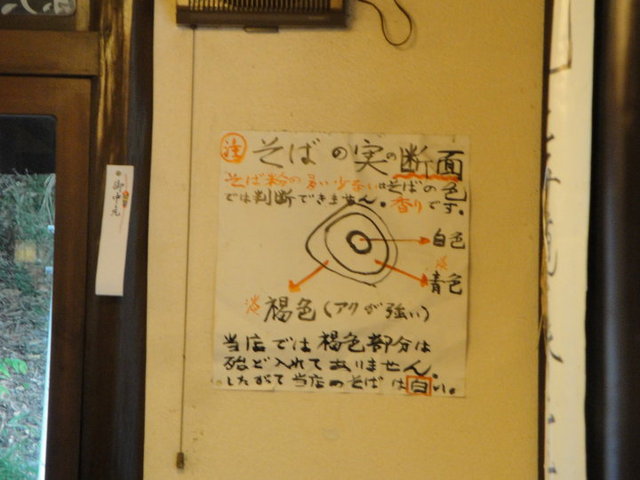 注 そばの実の断面
そば粉の多い少ないはそばの色
では判断できません。香りです。
白色
淡
青色
淡 褐色(アクが強い)
当店では褐色部分は
殆ど入れてありません。
したがって当店のそばは白い。
御中元